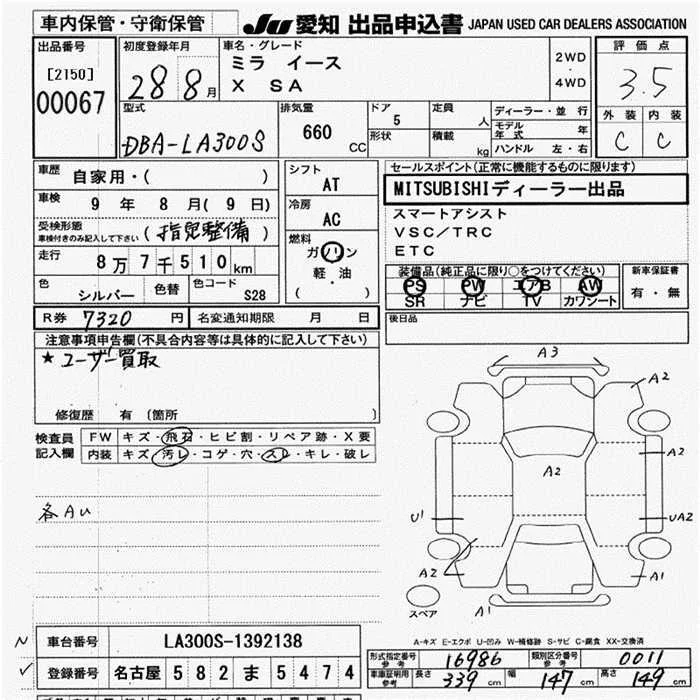 車内保管・守衛保管
JU 愛知 出品申込書 JAPAN USED CAR DEALERS ASSOCIATION
出品番号
[2150]
00067
初度登録年月
28 8月
車名・グレード
ミラ イース
X SA
2WD
・
4WD
評価点
3.5
外装 内装
C C
型式
DBA-LA300S
排気量
660 CC
ドア
5
形状
定員
人
積載
kg
ディーラー・並行
モデル年式 年
ハンドル 左・右
車歴
自家用・( )
車検
9 年 8 月 ( 9 日)
受検形態
車検付きのみ記入して下さい
(指定整備)
走行
8万7千510km
色
シルバー
色替
色コード
S28
シフト
AT
冷房
AC
燃料
ガソリン
軽・油
( )
セールスポイント(正常に機能するものに限ります)
MITSUBISHIディーラー出品
スマートアシスト
VSC/TRC
ETC
装備品(純正品に限り○をつけてください)
PS PW エアB AW
SR ナビ TV カワシート
新車保証書
有・無
後日品
R券 7320 円
名変通知期限 月 日
注意事項申告欄(不具合内容等は具体的に記入して下さい)
★ユーザー買取
修復歴 有 (箇所 )
検査員
記入欄
FW キズ・飛石・ヒビ割・リペア跡・X要
内装 キズ・汚レ・コゲ・穴・スレ・キレ・破レ
各AU
A3
A2
A2
A2
U1
UA2
A2
A1
A1
スペア
A-キズ E-エクボ U-凹み W-補修跡 S-サビ C-腐食 XX-交換済
車台番号 LA300S-1392138
登録番号 名古屋 582 ま 5474
形式指定番号
参考
16986
類別区分番号
参考
0011
車庫証明用
参考
長さ 339 cm 幅 147 cm 高さ 149 cm